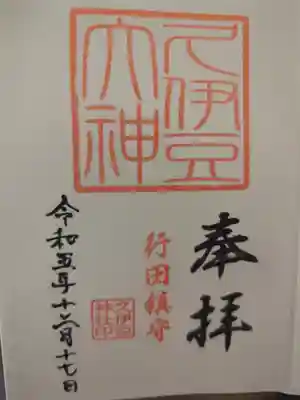 久伊豆
大神
奉拝
行田鎮守
令和五年十二月十七日